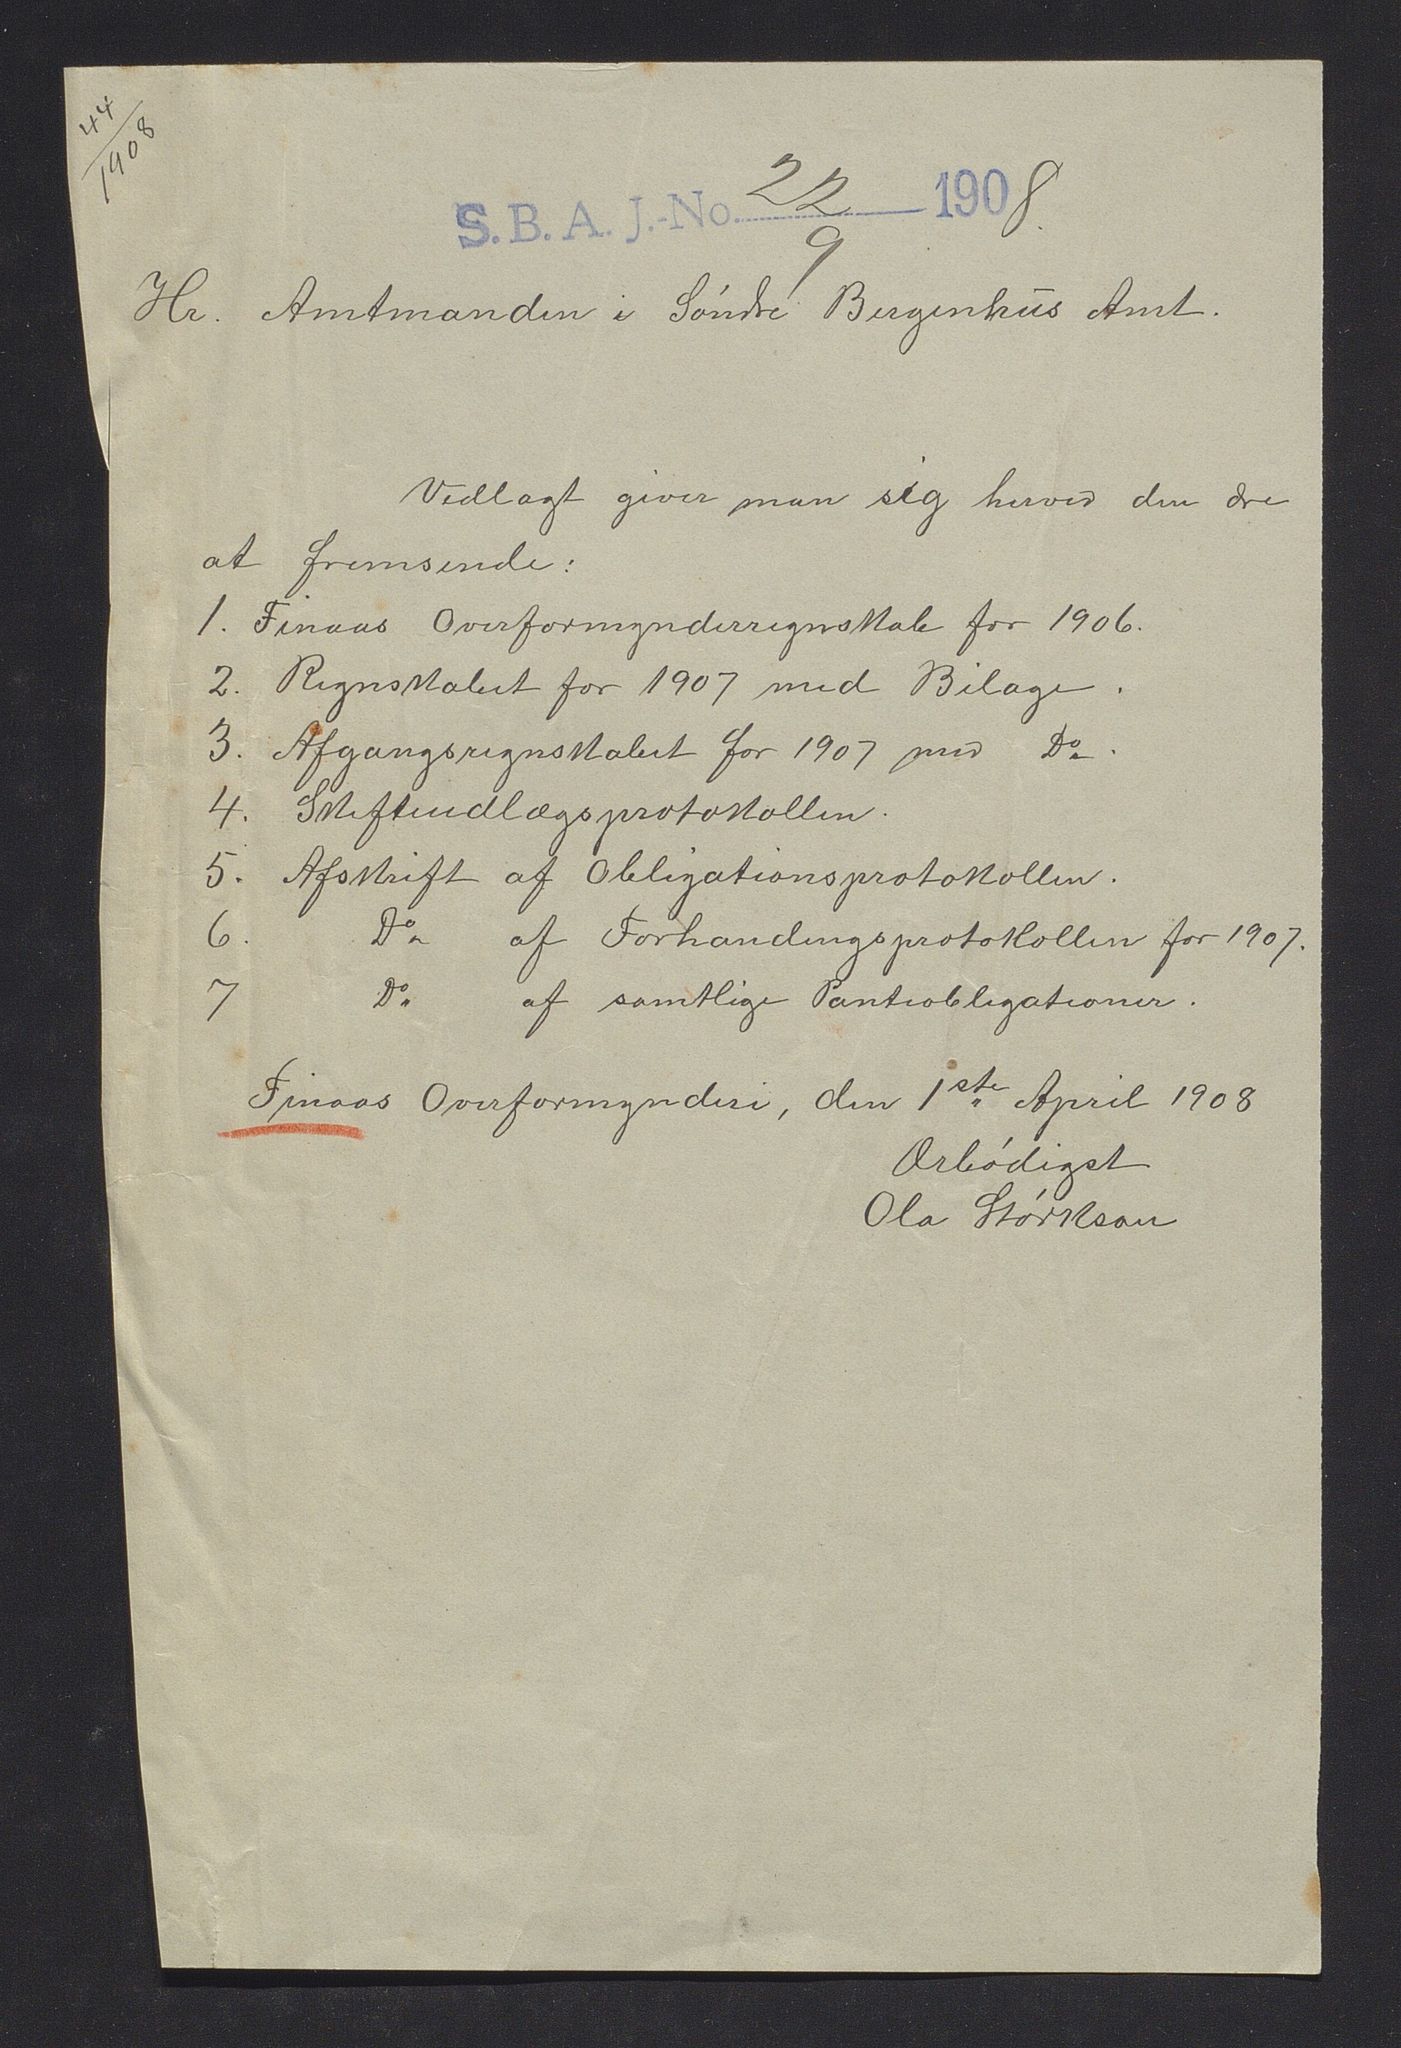 44
1908
S. B. A. J.-No. 22 1908
9
Hr. Amtmanden i Söndre Bergenhus Amt.
Vedlagt giver man sig herved den Ære
at fremsende:
1. Finaas Overformynderregnskab for 1906.
2. Regnskabet for 1907 med Bilage.
3. Afgangsregnskabet for 1907 med Do.
4. Skifteudlægsprotokollen.
5. Afskrift af Obligationsprotokollen.
6. Do af Forhandingsprotokollen for 1907.
7 Do af samtlige Panteobligationer.
Finaas Overformynderi, den 1ste April 1908
Ærbódigst
Ola Störkson